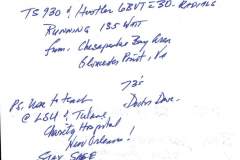 TS 930 & Hustler 6BVT = 30 RADIALS
RUNNING 135 WATT
from Chesapeake Bay Area
Point, Va
73's
Doctor Dave
PS. Use to teach
@ LSU & Tulane
Charity Hospital
New Orleans!
STAY SAFE